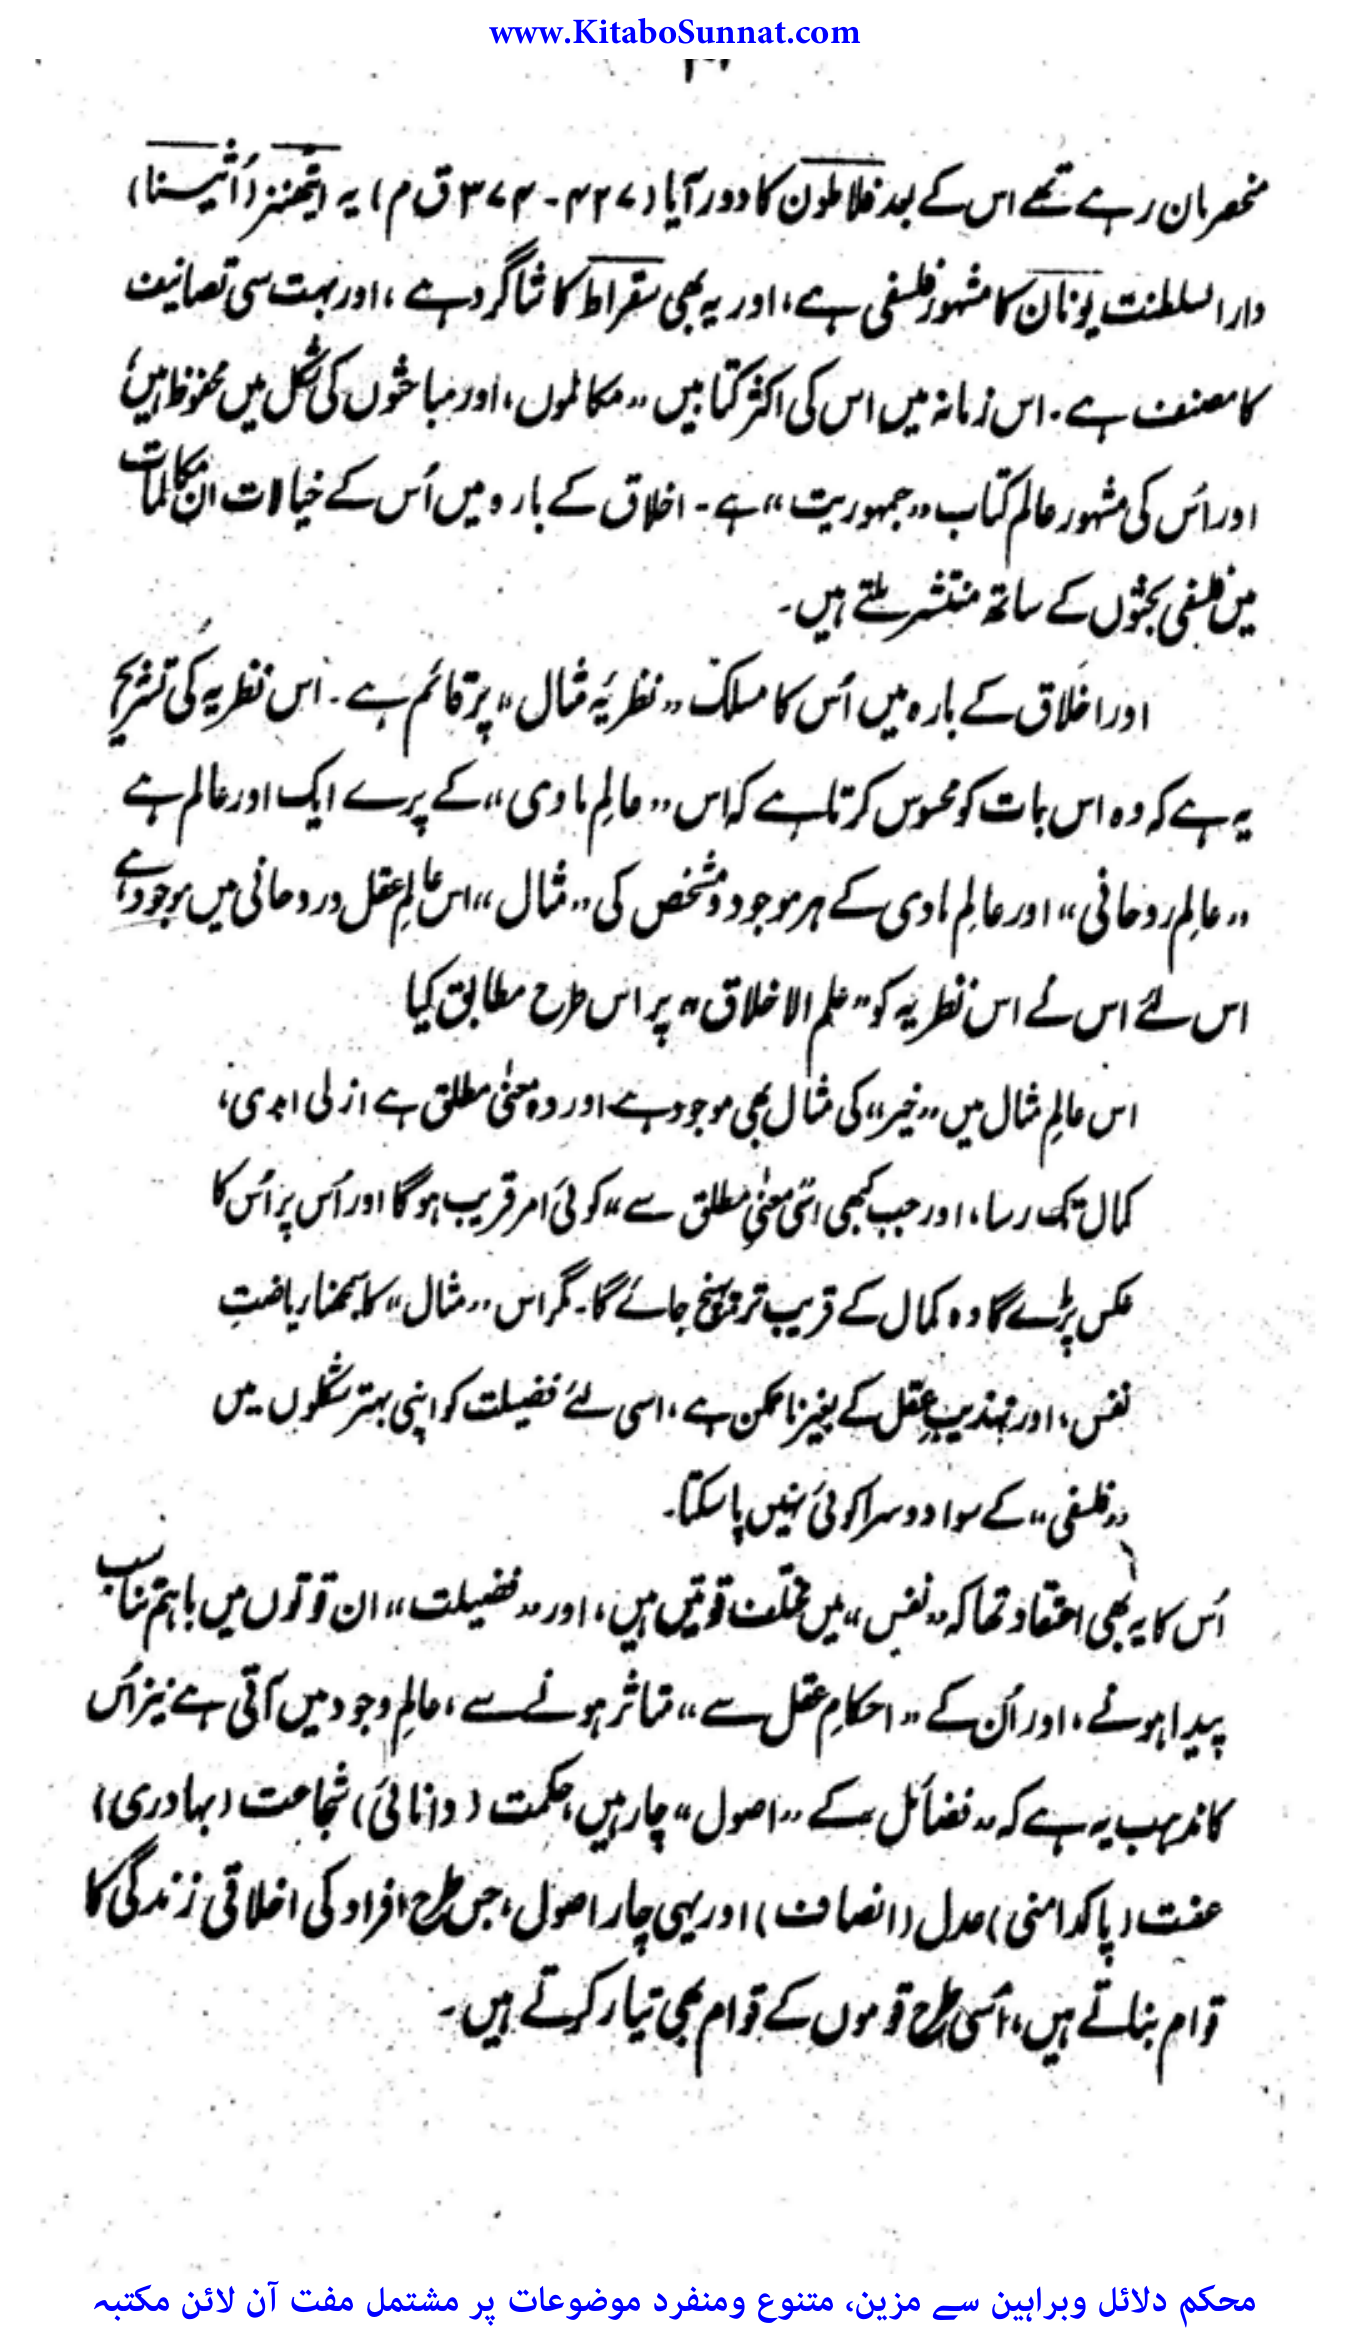 www.KitaboSunnat.com
منحصر مان رہے تھے اس کے بعد فلاطون کا دور آیا (۴۲۷ - ۳۷۴ ق م) یہ ایتھنز (اُثینا)
دار السلطنت یونان کا مشہور فلسفی ہے، اور یہ بھی سقراط کا شاگرد ہے، اور بہت سی تصانیف
کا مصنف ہے۔ اس زمانہ میں اس کی اکثر کتابیں ”مکالموں، اور مباحثوں کی شکل میں محفوظ ہیں،
اور اُس کی مشہور عالم کتاب ”جمہوریت“ ہے۔ اخلاق کے بارہ میں اُس کے خیالات ان مکالمات
میں فلسفی بحثوں کے ساتھ منتشر ملتے ہیں۔
اور اخلاق کے بارہ میں اُس کا مسلک ”نظریۂ مثال“ پر قائم ہے۔ اس نظریہ کی تشریح
یہ ہے کہ وہ اس بات کو محسوس کرتا ہے کہ اس ”عالمِ مادی“ کے پرے ایک اور عالم ہے
”عالمِ روحانی“ اور عالمِ مادی کے ہر موجود و مشخص کی ”مثال“ اس عالمِ عقل و روحانی میں موجود ہے
اس لئے اس نے اس نظریہ کو ”علم الاخلاق“ پر اس طرح مطابق کیا
اس عالمِ مثال میں ”خیر“ کی مثال بھی موجود ہے اور وہ معنیٰ مطلق ہے ازلی ابدی،
کمال تک رسا، اور جب کبھی اسی معنیٰ مطلق سے“ کوئی امر قریب ہوگا اور اُس پر اُس کا
عکس پڑے گا وہ کمال کے قریب تر پہنچ جائے گا۔ مگر اس ”مثال“ کا سمجھنا ریاضتِ
نفس، اور تہذیبِ عقل کے بغیر ناممکن ہے، اسی لئے فضیلت کو اپنی بہتر شکلوں میں
”فلسفی“ کے سوا دوسرا کوئی نہیں پا سکتا۔
اُس کا یہ بھی اعتقاد تھا کہ ”نفس“ میں مختلف قوتیں ہیں، اور ”فضیلت“ ان قوتوں میں باہم تناسب
پیدا ہونے، اور اُن کے ”احکامِ عقل سے“ متاثر ہونے سے، عالمِ وجود میں آتی ہے نیز اُس
کا مذہب یہ ہے کہ ”فضائل کے ”اصول“ چار ہیں، حکمت (دانائی) شجاعت (بہادری)
عفت (پاکدامنی) عدل (انصاف) اور یہی چار اصول، جس طرح افراد کی اخلاقی زندگی کا
قوام بناتے ہیں، اُسی طرح قوموں کے قوام بھی تیار کرتے ہیں۔
محکم دلائل وبراہین سے مزین، متنوع ومنفرد موضوعات پر مشتمل مفت آن لائن مکتبہ